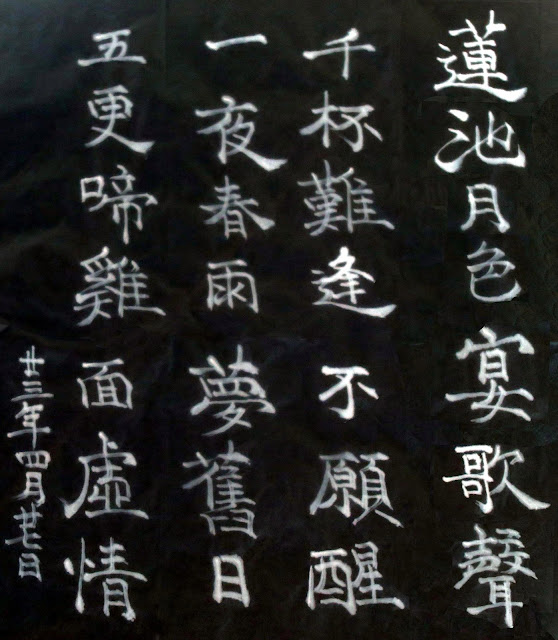 蓮池月色宴歌聲
千杯難逢不願醒
一夜春雨夢舊日
五更啼雞面虛情
廿三年四月廿七日